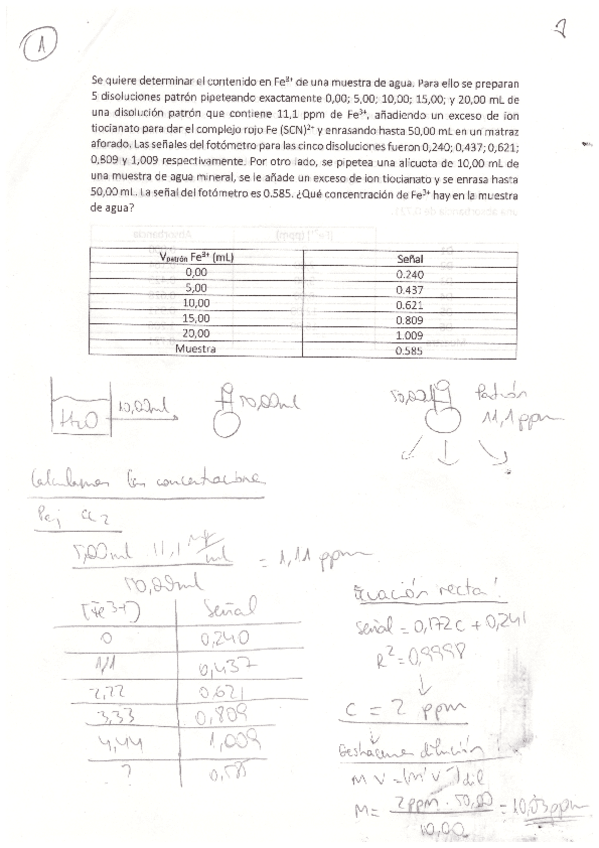 1
2
Se quiere determinar el contenido en Fe³⁺ de una muestra de agua. Para ello se preparan
5 disoluciones patrón pipeteando exactamente 0,00; 5,00; 10,00; 15,00; y 20,00 mL de
una disolución patrón que contiene 11,1 ppm de Fe³⁺, añadiendo un exceso de ion
tiocianato para dar el complejo rojo Fe (SCN)²⁺ y enrasando hasta 50,00 mL en un matraz
aforado. Las señales del fotómetro para las cinco disoluciones fueron 0,240; 0,437; 0,621;
0,809 y 1,009 respectivamente. Por otro lado, se pipetea una alícuota de 10,00 mL de
una muestra de agua mineral, se le añade un exceso de ion tiocianato y se enrasa hasta
50,00 mL. La señal del fotómetro es 0.585. ¿Qué concentración de Fe³⁺ hay en la muestra
de agua?
Vpatrón Fe³⁺ (mL) Señal
0,00 0.240
5,00 0.437
10,00 0.621
15,00 0.809
20,00 1.009
Muestra 0.585
H2O 10,00ml 50,00ml 50,00ml Patrón
11,1 ppm
Calculamos las concentraciones
Pej
5,00ml · 11,1 mg/ml = 1,11 ppm
50,00ml
[Fe3+] Señal
0 0,240
1,11 0,437
2,22 0,621
3,33 0,809
4,44 1,009
? 0,585
Ecuación recta:
Señal = 0,172 C + 0,241
R² = 0,9998
C = 2 ppm
Deshacemos dilución:
M V = (M' V') dil
M = 2ppm · 50,00 = 10,03 ppm
10,00